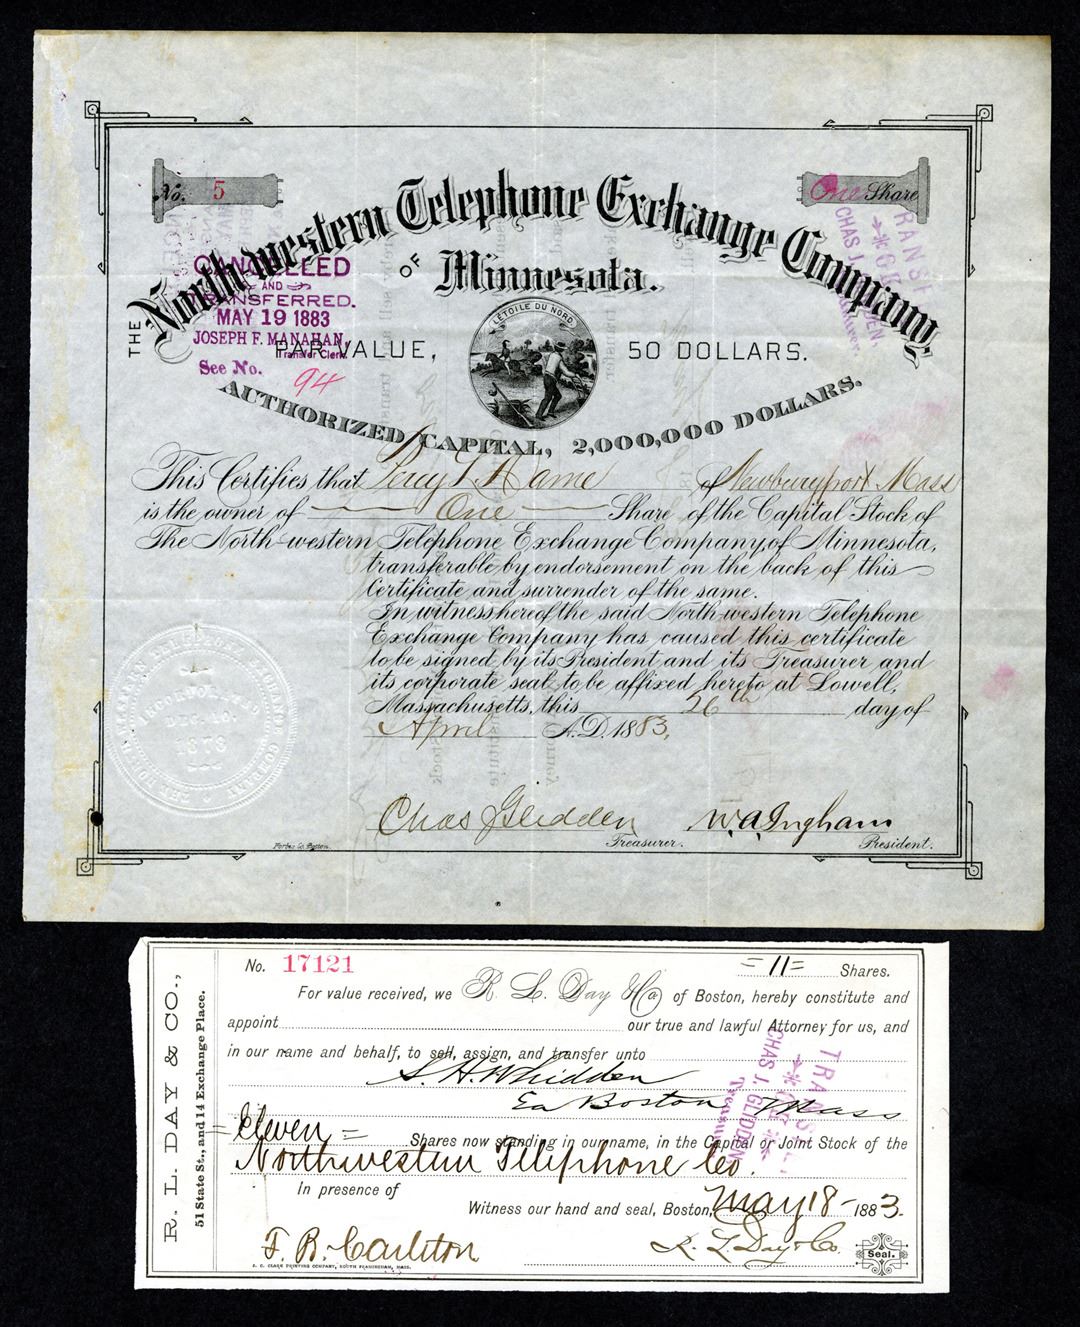 No. 5
One Share
THE North-western Telephone Exchange Company
OF Minnesota.
CANCELLED
AND
TRANSFERRED.
MAY 19 1883
JOSEPH F. MANAHAN,
Transfer Clerk.
See No.
94
TRANSFER
CHAS J. GLIDDEN,
Treasurer.
L'ÉTOILE DU NORD
PAR VALUE, 50 DOLLARS.
AUTHORIZED CAPITAL, 2,000,000 DOLLARS.
This Certifies that Percy L. Hame of Newburyport Mass
is the owner of One Share of the Capital Stock of
The North-western Telephone Exchange Company, of Minnesota,
transferable by endorsement on the back of this
Certificate and surrender of the same.
In witness hereof the said North-western Telephone
Exchange Company has caused this certificate
to be signed by its President and its Treasurer and
its corporate seal to be affixed hereto at Lowell,
Massachusetts, this 26th day of
April A.D. 1883.
THE NORTHWESTERN TELEPHONE EXCHANGE COMPANY
INCORPORATED
DEC. 10,
1878
Chas J Glidden
Treasurer.
W. A. Ingham
President.
Forbes Co. Boston.
R. L. DAY & CO.,
51 State St., and 14 Exchange Place.
No. 17121
=11= Shares.
For value received, we R. L. Day & Co of Boston, hereby constitute and
appoint our true and lawful Attorney for us, and
in our name and behalf, to sell, assign, and transfer unto
S. H. Whidden
Ea Boston Mass
=Eleven= Shares now standing in our name, in the Capital or Joint Stock of the
Northwestern Telephone Co.
TRANSFER
CHAS J. GLIDDEN
Treasurer
In presence of
Witness our hand and seal, Boston, May 18- 1883.
F. R. Carleton
R. L. Day & Co.
Seal.
J. C. CLARK PRINTING COMPANY, SOUTH FRAMINGHAM, MASS.